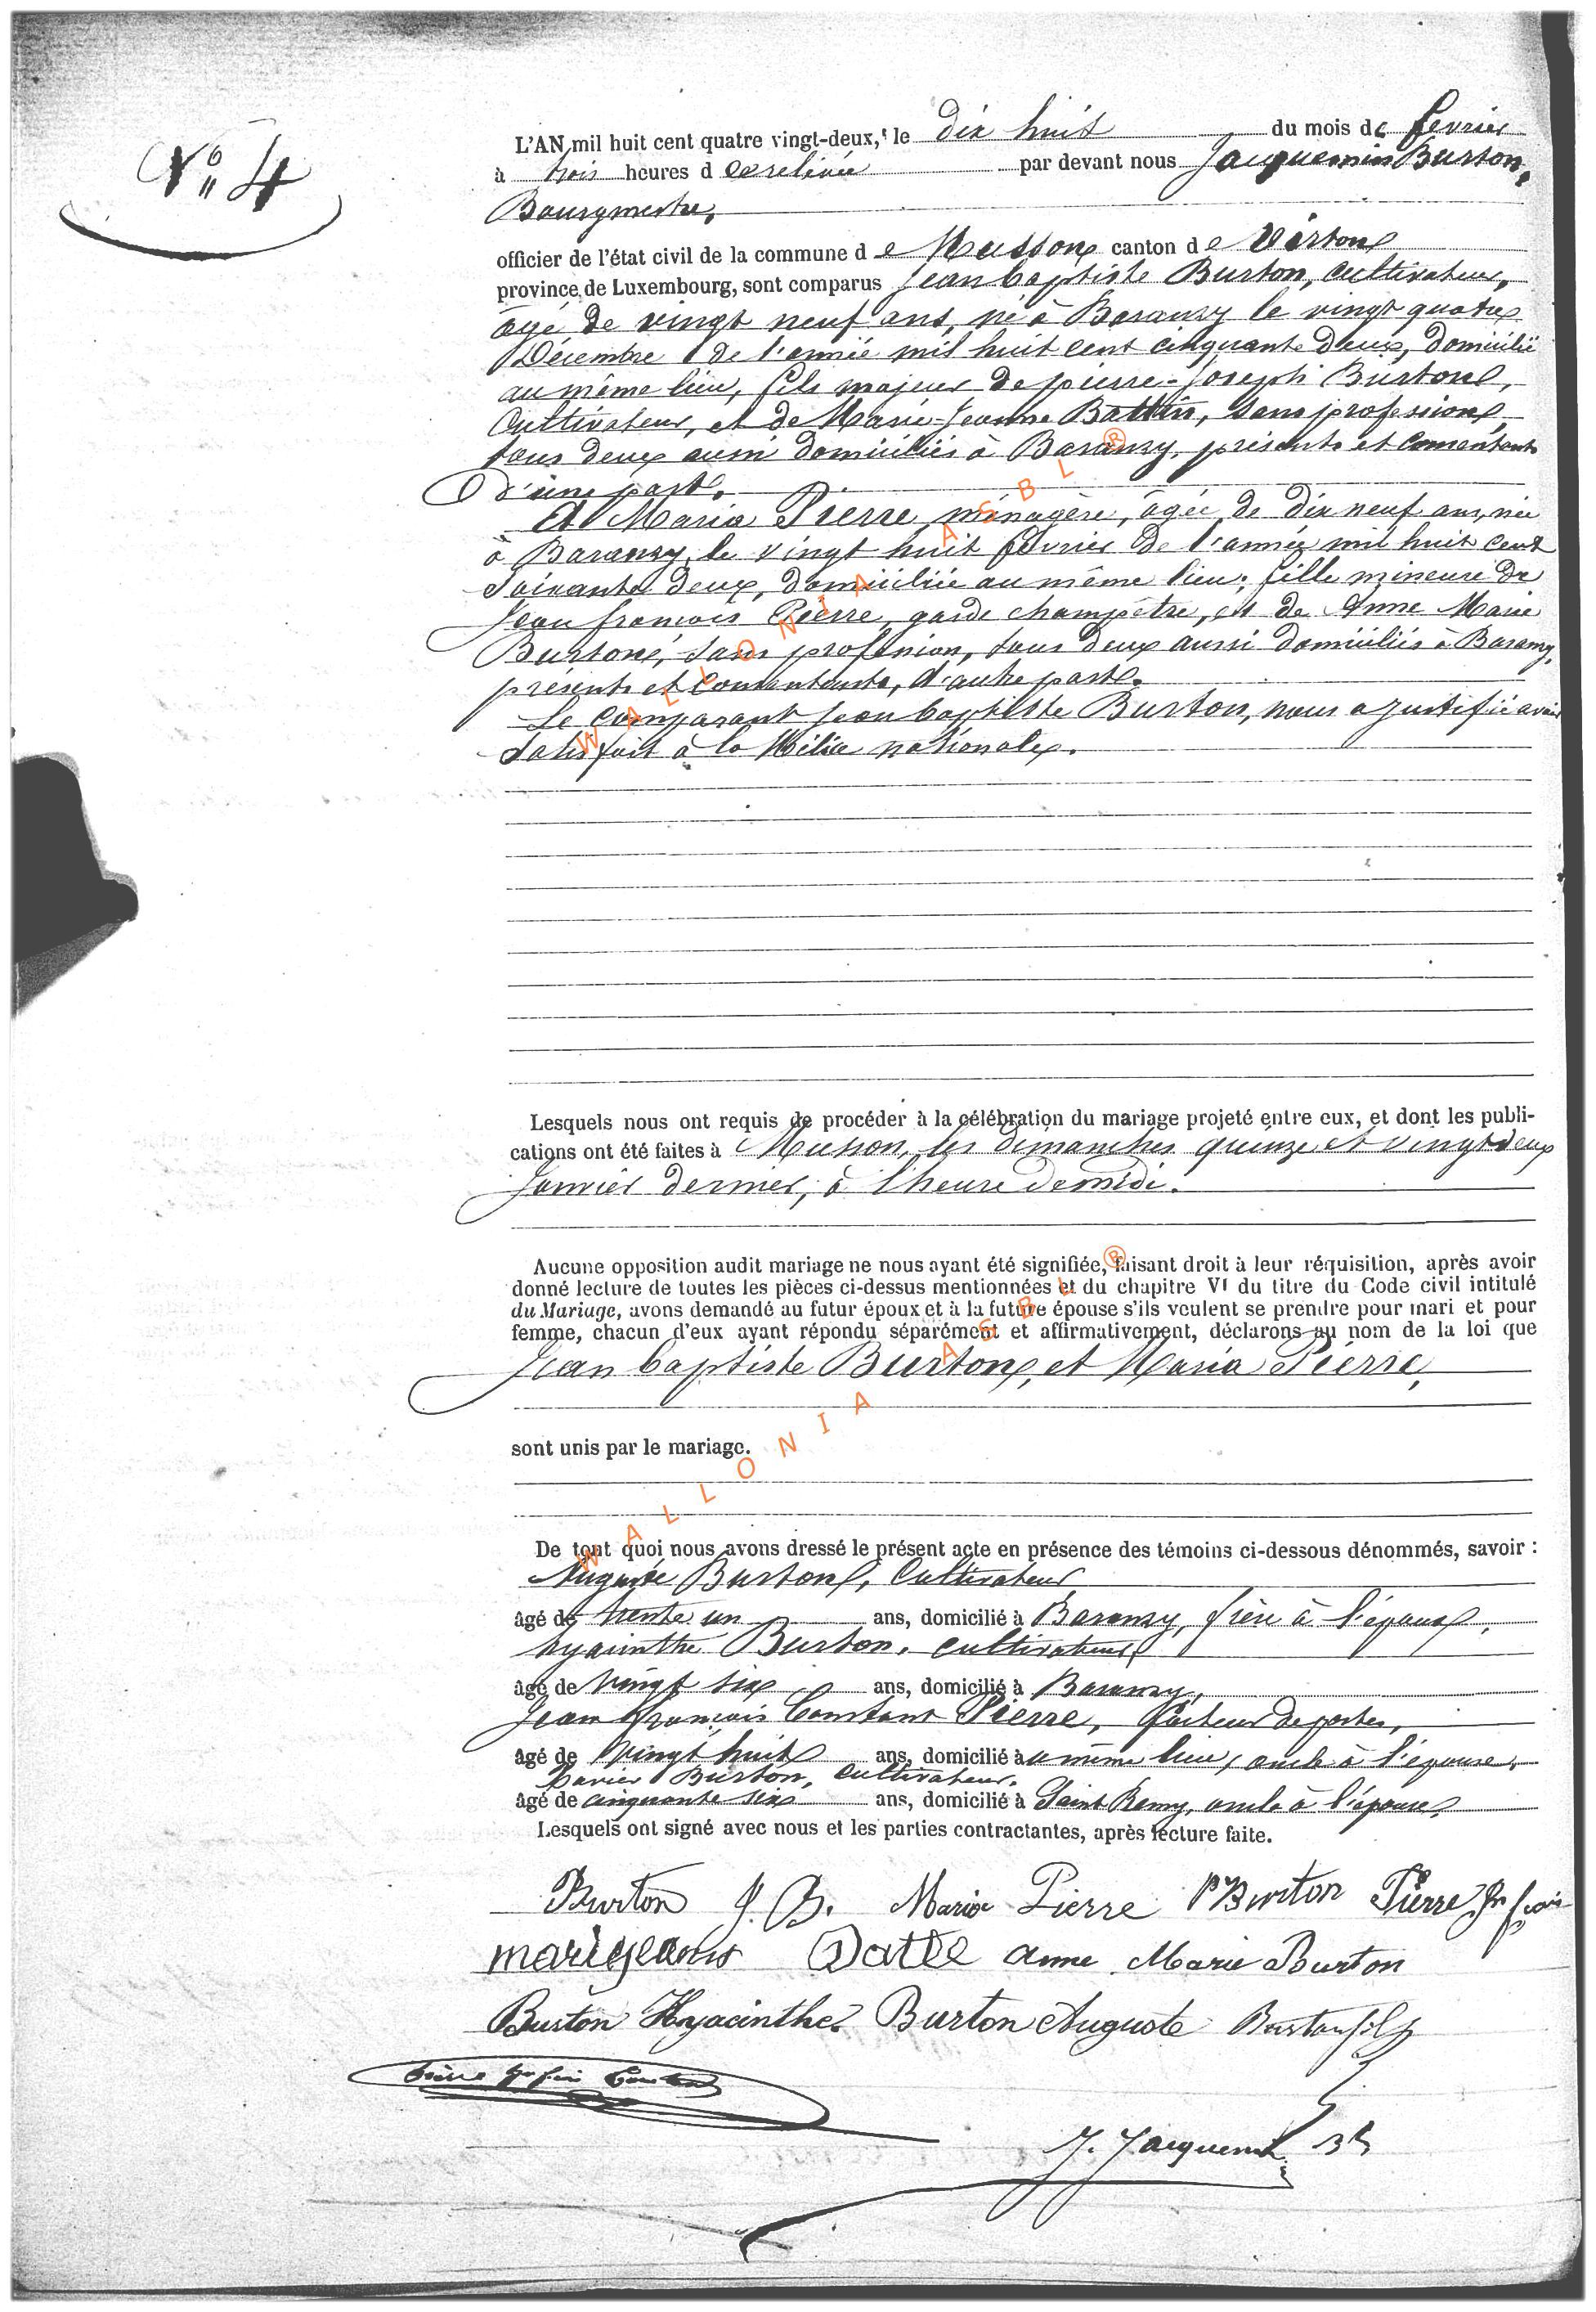 N° 4
L'AN mil huit cent quatre vingt-deux, le dix huit du mois de fevrier
à trois heures d e relevée par devant nous Jacquemin Burton,
Bourgmestre,
officier de l'état civil de la commune d e Musson canton d e Virton
province de Luxembourg, sont comparus Jean baptiste Burton, cultivateur,
âgé de vingt neuf ans, né à Baranzy le vingt quatre
Décembre de l'année mil huit cent cinquante deux, domicilié
au même lieu, fils majeur de pierre-Joseph Burton,
Cultivateur, et de Marie-Jeanne Battin, sans profession,
tous deux aussi domiciliés à Baranzy, présents et consentants
d'une part.
Et Maria Pierre ménagère, âgée de dix neuf ans, née
à Baranzy, le vingt huit février de l'année mil huit cent
soixante deux, domiciliée au même lieu, fille mineure de
Jean françois Pierre, garde champêtre, et de Anne Marie
Burton, sans profession, tous deux aussi domiciliés à Baranzy,
présents et consentants, d'autre part.
Le comparant Jean baptiste Burton, nous a justifié avoir
satisfait à la Milice nationale.
Lesquels nous ont requis de procéder à la célébration du mariage projeté entre eux, et dont les publi-
cations ont été faites à Musson, les dimanches quinze et vingt deux
Janvier dernier, à l'heure de midi.
Aucune opposition audit mariage ne nous ayant été signifiée, faisant droit à leur réquisition, après avoir
donné lecture de toutes les pièces ci-dessus mentionnées et du chapitre VI du titre du Code civil intitulé
du Mariage, avons demandé au futur époux et à la future épouse s'ils veulent se prendre pour mari et pour
femme, chacun d'eux ayant répondu séparément et affirmativement, déclarons au nom de la loi que
Jean baptiste Burton, et Maria Pierre,
sont unis par le mariage.
De tout quoi nous avons dressé le présent acte en présence des témoins ci-dessous dénommés, savoir :
Auguste Burton, Cultivateur
âgé de trente un ans, domicilié à Baranzy, frère à l'époux,
hyacinthe Burton, cultivateur
âgé de vingt six ans, domicilié à Baranzy,
Jean françois Constant Pierre, facteur de postes,
âgé de vingt huit ans, domicilié à u même lieu, oncle à l'épouse,
Xavier Burton, cultivateur,
âgé de cinquante six ans, domicilié à Saint Remy, oncle à l'épouse,
Lesquels ont signé avec nous et les parties contractantes, après lecture faite.
Burton J. B. Maria Pierre P Burton Pierre Jn fçois
marie jeanne anne Marie Burton
Burton Hyacinthe Burton Auguste Burton
J. Jacquemin
WALLONIA ASBL ®
WALLONIA ASBL ®